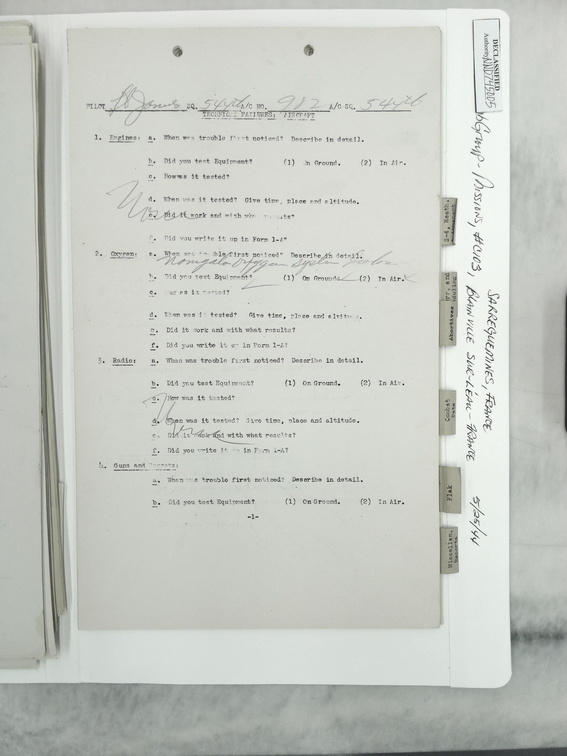 PILOT Jones SQ. 544th A/C NO. 982 A/C SQ. 544th
TECHNICAL FAILURES: AIRCRAFT
1. Engines: a. When was trouble first noticed? Describe in detail.
b. Did you test Equipment? (1) On Ground. (2) In Air.
c. How was it tested?
d. When was it tested? Give time, place and altitude.
e. Did it work and with what results?
f. Did you write it up in Form 1-A?
2. Oxygen: a. When was trouble first noticed? Describe in detail.
Navigator Oxygen System
b. Did you test Equipment? (1) On Ground. (2) In Air.
c. How was it tested?
d. When was it tested? Give time, place and altitude.
e. Did it work and with what results?
f. Did you write it up in Form 1-A?
3. Radio: a. When was trouble first noticed? Describe in detail.
b. Did you test Equipment? (1) On Ground. (2) In Air.
c. How was it tested?
d. When was it tested? Give time, place and altitude.
e. Did it work and with what results?
f. Did you write it up in Form 1-A?
4. Guns and Turrets:
a. When was trouble first noticed? Describe in detail.
b. Did you test Equipment? (1) On Ground. (2) In Air.
-1-
DECLASSIFIED
Authority NND745005
Group - Missions, #CU03, SARREGUEMINES, FRANCE
BLAINVILLE SUR-L'EAU - FRANCE 5/25/44
Abortives
Combat
Data
Flak
Miscellan.
Reports